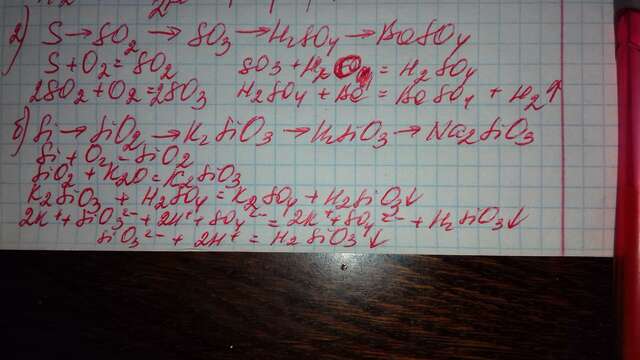 а) S → SO2 → SO3 → H2SO4 → BaSO4
S + O2 = SO2 SO3 + H2O = H2SO4
2SO2 + O2 = 2SO3 H2SO4 + Ba = BaSO4 + H2↑
б) Si → SiO2 → K2SiO3 → H2SiO3 → Na2SiO3
Si + O2 = SiO2
SiO2 + K2O = K2SiO3
K2SiO3 + H2SO4 = K2SO4 + H2SiO3↓
2K⁺ + SiO3²⁻ + 2H⁺ + SO4²⁻ = 2K⁺ + SO4²⁻ + H2SiO3↓
SiO3²⁻ + 2H⁺ = H2SiO3↓